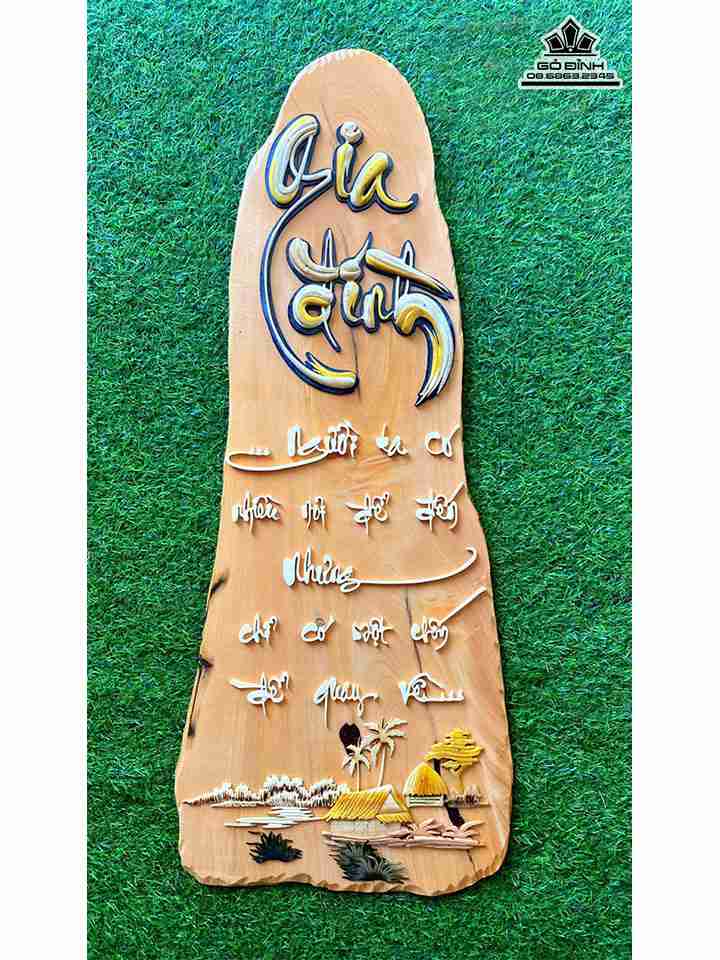 GỖ ĐỈNH
08.6863.2345
Gia
đình
... Người ta có
nhiều nơi để đến
Nhưng
chỉ có một chốn
để quay về...